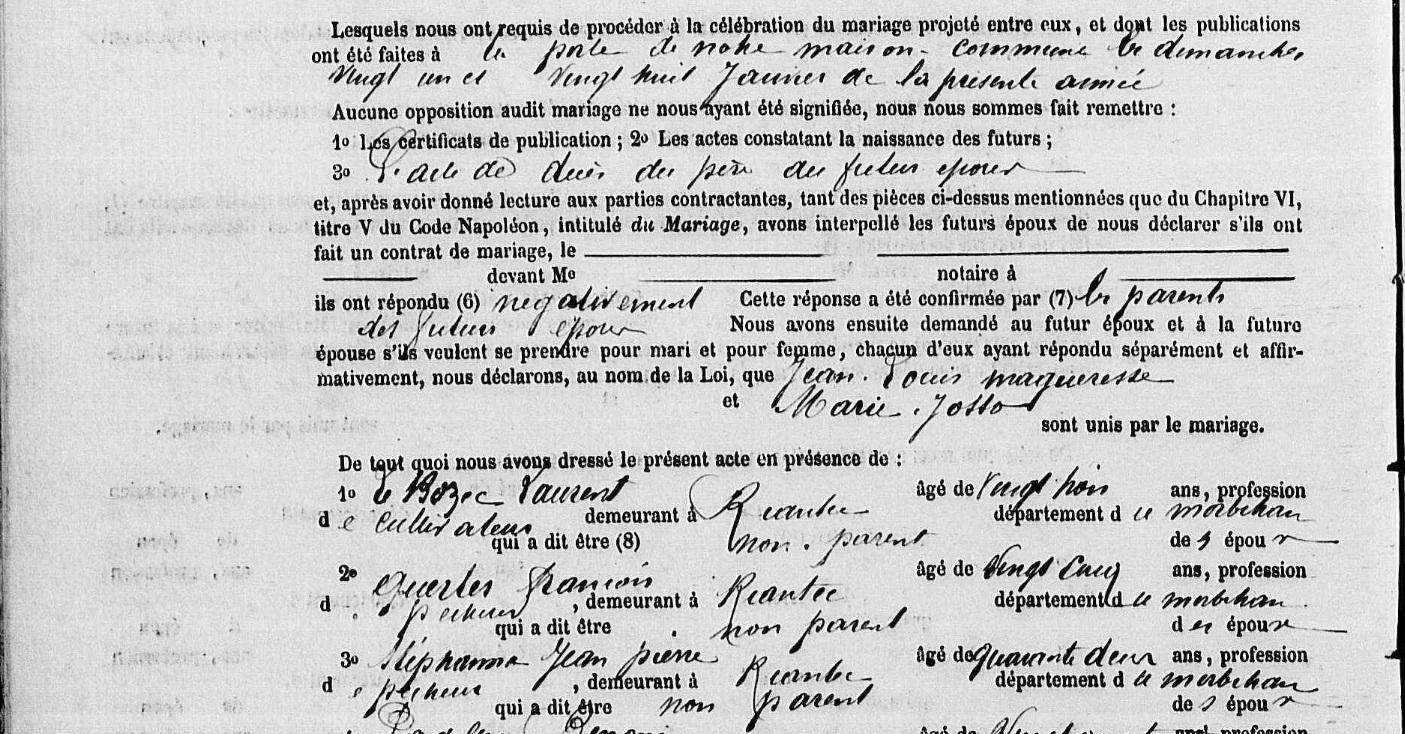 Lesquels nous ont requis de procéder à la célébration du mariage projeté entre eux, et dont les publications
ont été faites à la porte de notre maison commune les dimanches
Vingt un et Vingt huit Janvier de la présente année
Aucune opposition audit mariage ne nous ayant été signifiée, nous nous sommes fait remettre :
1o Les certificats de publication ; 2o Les actes constatant la naissance des futurs ;
3o L'acte de décès du père du futur époux
et, après avoir donné lecture aux parties contractantes, tant des pièces ci-dessus mentionnées que du Chapitre VI,
titre V du Code Napoléon, intitulé du Mariage, avons interpellé les futurs époux de nous déclarer s'ils ont
fait un contrat de mariage, le
devant Me notaire à
ils ont répondu (6) négativement Cette réponse a été confirmée par (7) les parents
des futurs époux Nous avons ensuite demandé au futur époux et à la future
épouse s'ils veulent se prendre pour mari et pour femme, chacun d'eux ayant répondu séparément et affir-
mativement, nous déclarons, au nom de la Loi, que Jean Louis magueresse
et Marie Josso
sont unis par le mariage.
De tout quoi nous avons dressé le présent acte en présence de :
1o Le Bozec Laurent âgé de Vingt trois ans, profession
de Cultivateur demeurant à Riantec département du morbihan
qui a dit être (8) non parent des époux
2o François âgé de Vingt Cinq ans, profession
d pêcheur, demeurant à Riantec département du morbihan
qui a dit être non parent des époux
3o Stéphanno Jean pierre âgé de quarante deux ans, profession
de pêcheur, demeurant à Riantec département du morbihan
qui a dit être non parent des époux